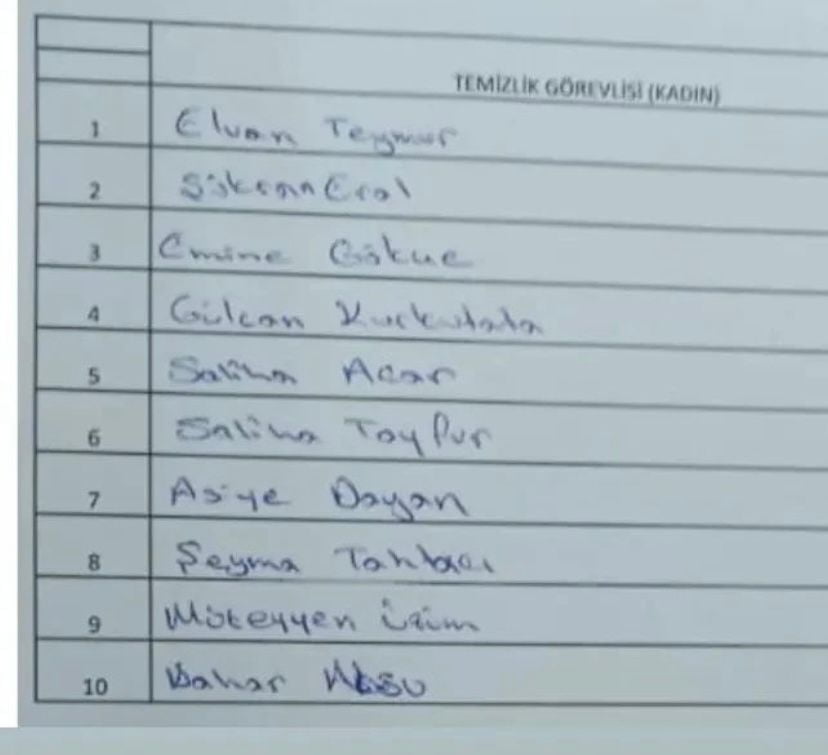 TEMİZLİK GÖREVLİSİ (KADIN)
1 Elvan Teymur
2 Eral
3 Emine Gökçe
4 Gülcan Kurkutata
5 Saliha Acar
6 Saliha Tayfur
7 Asiye Dayan
8 Şeyma Tahtacı
9 Müzeyyen
10 Bahar